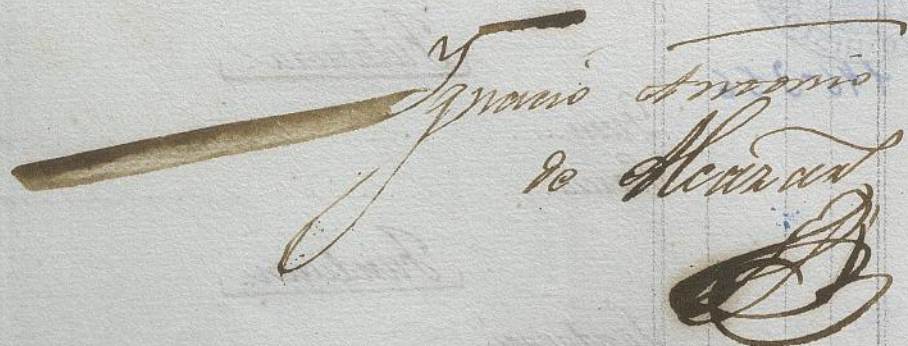 Ygnacio Antonio
de Alcazar